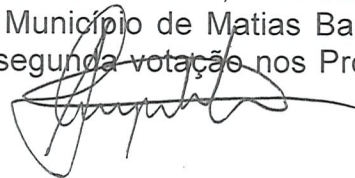 Município de Matias Ba
segunda votação nos Pro